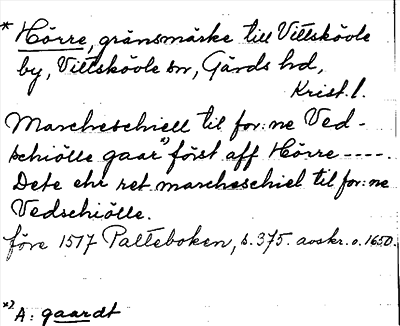 * Hörre, gränsmärke till VittsköVle
by, Vittskövle sn, Gärds hd,
Krist. l.
Marcheschiell til for:ne Ved-
schiölle gaar*) först aff Hörre ----.
Dete ehr ret marcheschiel til for:ne
Vedschiölle.
före 1517 Palteboken, s. 375. avskr. o. 1650.
*) A: gaardt